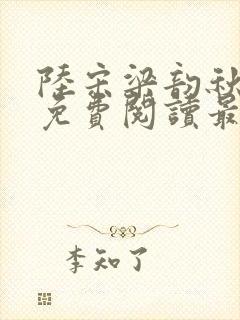 陸宗梁韵秋
免費閱讀最
李知了